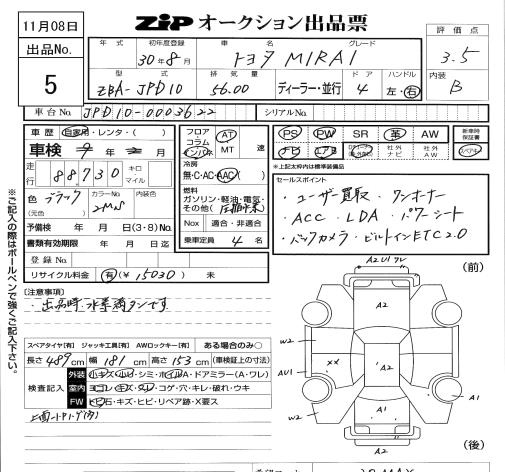 11月08日
ZiP オークション出品票
評価点
3.5
出品No.
5
年式 初年度登録 車名 グレード
30年8月 トヨタ MIRAI
型式 排気量 ドア ハンドル
ZBA-JPD10 56.00 ディーラー・並行 4 左・右
内装
B
車台No. JPD10-0003622 シリアルNo.
車歴 自家用・レンタ・( )
車検 年 月
走行 88730 キロ マイル
色 ブラック カラーNo. 内装色
(元色)
予備検 年 月 日(3・8)No.
書類有効期限 年 月 日迄
登録No.
リサイクル料金 有(¥15030) 未
フロア コラム インパネ AT MT 速
冷房
無・C・AC・AAC( )
燃料
ガソリン・軽油・電気・
その他(圧縮水素)
Nox 適合・非適合
乗車定員 4 名
PS PW SR 革 AW 新車時保証書
ナビ 社外ナビ 社外AW
※上枠太わく内は標準装備品
セールスポイント
・ユーザー買取・ワンオーナー
・ACC・LDA・パワーシート
・バックカメラ・ビルトインETC2.0
[注意事項]
・出品時水素満タンです
スペアタイヤ[有] ジャッキ工具[有] AWロックキー[有] ある場合のみ○
長さ 489 cm 幅 181 cm 高さ 153 cm (車検証上の寸法)
検査記入
外装 小キズ・小凹・シミ・ホイルA・ドアミラー(A・ワレ)
室内 ヨゴレ・キズ・スレ・コゲ・穴・キレ・破れ・ウキ
FW ヒ石・キズ・ヒビ・リペア跡・X要ス
※ご記入の際はボールペンで強くご記入下さい。
(前)
A2 U1 ワレ
A2
W2
W2
XX
A2
AU1
A1
A1
A2
(後)